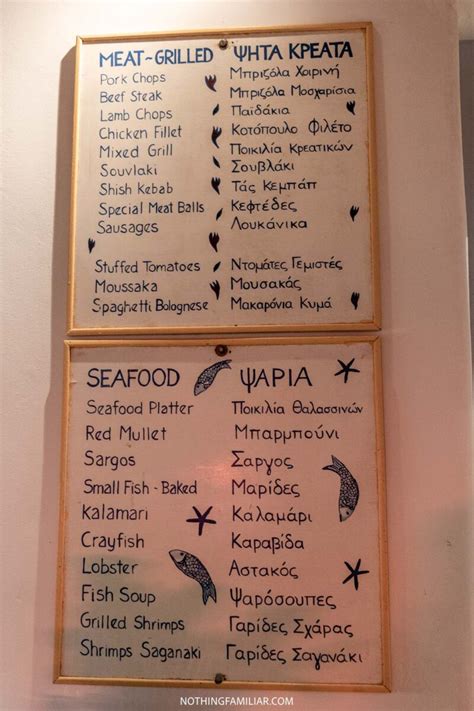 MEAT-GRILLED ΨΗΤΑ ΚΡΕΑΤΑ
Pork Chops Μπριζόλα Χοιρινή
Beef Steak Μπριζόλα Μοσχαρίσια
Lamb Chops Παϊδάκια
Chicken Fillet Κοτόπουλο Φιλέτο
Mixed Grill Ποικιλία Κρεατικών
Souvlaki Σουβλάκι
Shish Kebab Τάς Κεμπάπ
Special Meat Balls Κεφτέδες
Sausages Λουκάνικα
Stuffed Tomatoes Ντομάτες Γεμιστές
Moussaka Μουσακάς
Spaghetti Bolognese Μακαρόνια Κιμά
SEAFOOD ΨΑΡΙΑ
Seafood Platter Ποικιλία Θαλασσινών
Red Mullet Μπαρμπούνι
Sargos Σαργος
Small Fish - Baked Μαρίδες
Kalamari Καλαμάρι
Crayfish Καραβίδα
Lobster Αστακός
Fish Soup Ψαρόσουπες
Grilled Shrimps Γαρίδες Σχάρας
Shrimps Saganaki Γαρίδες Σαγανάκι
NOTHINGFAMILIAR.COM